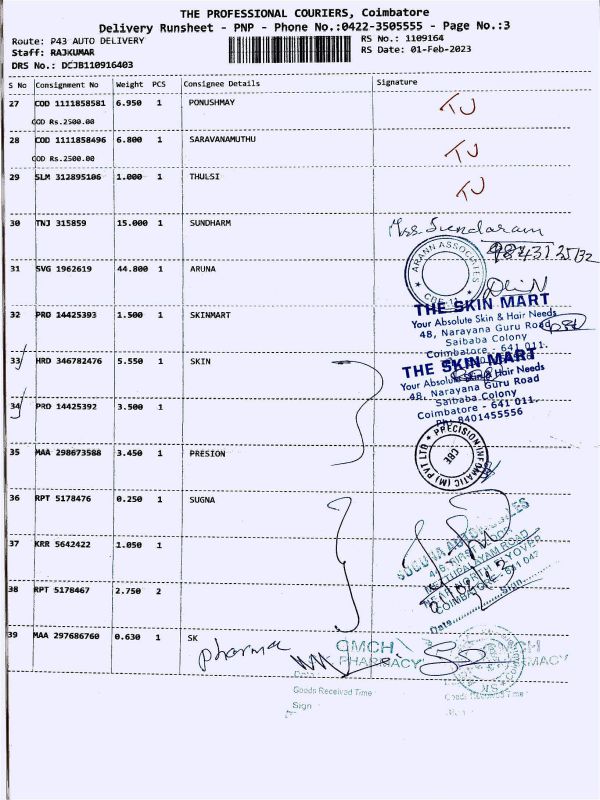 THE PROFESSIONAL COURIERS, Coimbatore
Delivery Runsheet - PNP - Phone No.:0422-3505555 - Page No.:3
Route: P43 AUTO DELIVERY RS No.: 1109164
Staff: RAJKUMAR RS Date: 01-Feb-2023
DRS No.: DCJB110916403
S No Consignment No Weight PCS Consignee Details Signature
27 COD 1111858581 6.950 1 PONUSHMAY TJ
COD Rs.2500.00
28 COD 1111858496 6.800 1 SARAVANAMUTHU TJ
COD Rs.2500.00
29 SLM 312895106 1.000 1 THULSI TJ
30 TNJ 315859 15.000 1 SUNDHARM
Sundaram
ARANN ASSOCIATES
CBE
31 SVG 1962619 44.800 1 ARUNA
32 PRO 14425393 1.500 1 SKINMART
THE SKIN MART
Your Absolute Skin & Hair Needs
48, Narayana Guru Road
Saibaba Colony
Coimbatore - 641 011.
33 HRD 346782476 5.550 1 SKIN
THE SKIN MART
Your Absolute Skin & Hair Needs
48, Narayana Guru Road
Saibaba Colony
Coimbatore - 641 011.
Ph: 8401455556
34 PRO 14425392 3.500 1
35 MAA 298673588 3.450 1 PRESION
PRECISION INFOMATIC (M) PVT LTD
CBE
36 RPT 5178476 0.250 1 SUGNA
37 KRR 5642422 1.050 1
38 RPT 5178467 2.750 2
COIMBATORE - 641 043
Date Sign
39 MAA 297686760 0.630 1 SK
pharma
GMCH
PHARMACY
Goods Received Time
Sign